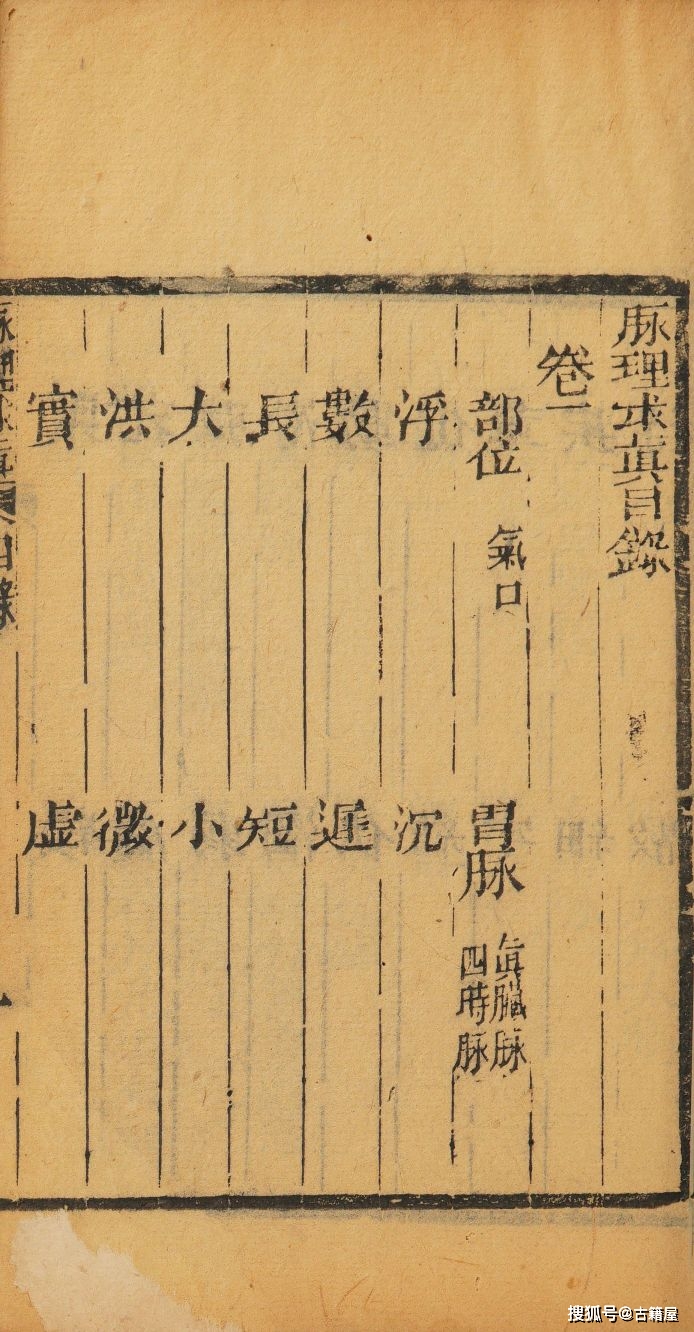 脈理求真目錄
卷一
部位 氣口 胃脈 真臟脈 四時脈
浮 沉
數 遲
長 短
大 小
洪 微
實 虛
脈理求真 目錄
搜狐号@古籍屋